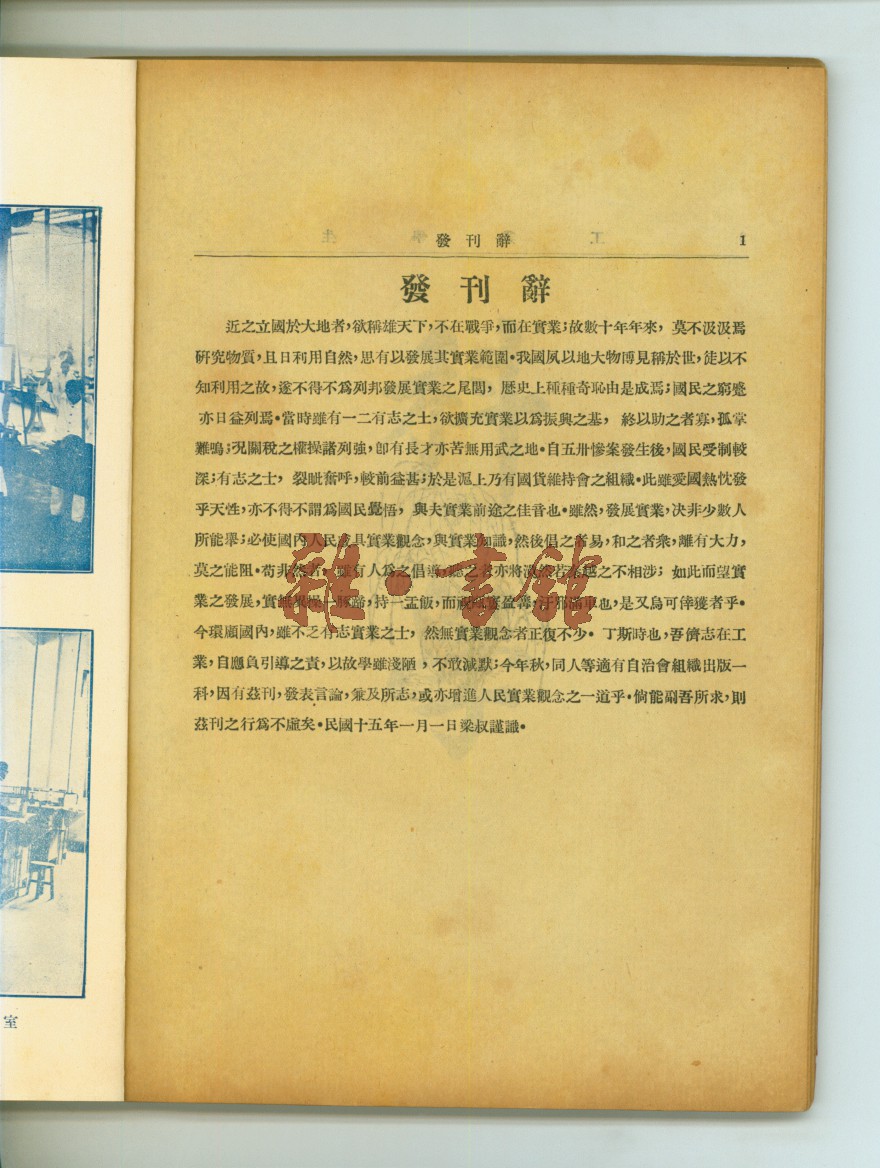 發刊辭 1
發刊辭
近之立國於大地者,欲稱雄天下,不在戰爭,而在實業;故數十年年來,莫不汲汲焉
硏究物質,且日利用自然,思有以發展其實業範圍•我國夙以地大物博見稱於世,徒以不
知利用之故,遂不得不爲列邦發展實業之尾閭,歷史上種種奇恥由是成焉;國民之窮蹙
亦日益列焉•當時雖有一二有志之士,欲擴充實業以爲振興之基,終以助之者寡,孤掌
難鳴;况關稅之權操諸列強,卽有長才亦苦無用武之地•自五卅慘案發生後,國民受制較
深;有志之士,裂眦奮呼,較前益甚;於是滬上乃有國貨維持會之組織•此雖愛國熱忱發
乎天性,亦不得不謂爲國民覺悟,與夫實業前途之佳音也•雖然,發展實業,决非少數人
所能舉;必使國內人民咸具實業觀念,與實業知識,然後倡之者易,和之者衆,離有大力,
莫之能阻•苟非然者,雖有人爲之倡導,聽之者亦將漠然若秦越之不相涉;如此而望實
業之發展,實無異操一豚蹄,持一盂飯,而祝甌窶盈篝,汙邪滿車也,是又烏可倖獲者乎•
今環顧國內,雖不乏有志實業之士,然無實業觀念者正復不少•丁斯時也,吾儕志在工
業,自應負引導之責,以故學雖淺陋,不敢滅默;今年秋,同人等適有自治會組織出版一
科,因有茲刊,發表言論,兼及所志,或亦增進人民實業觀念之一道乎•倘能副吾所求,則
茲刊之行爲不虛矣•民國十五年一月一日梁叔謹識•
雜•書館
室